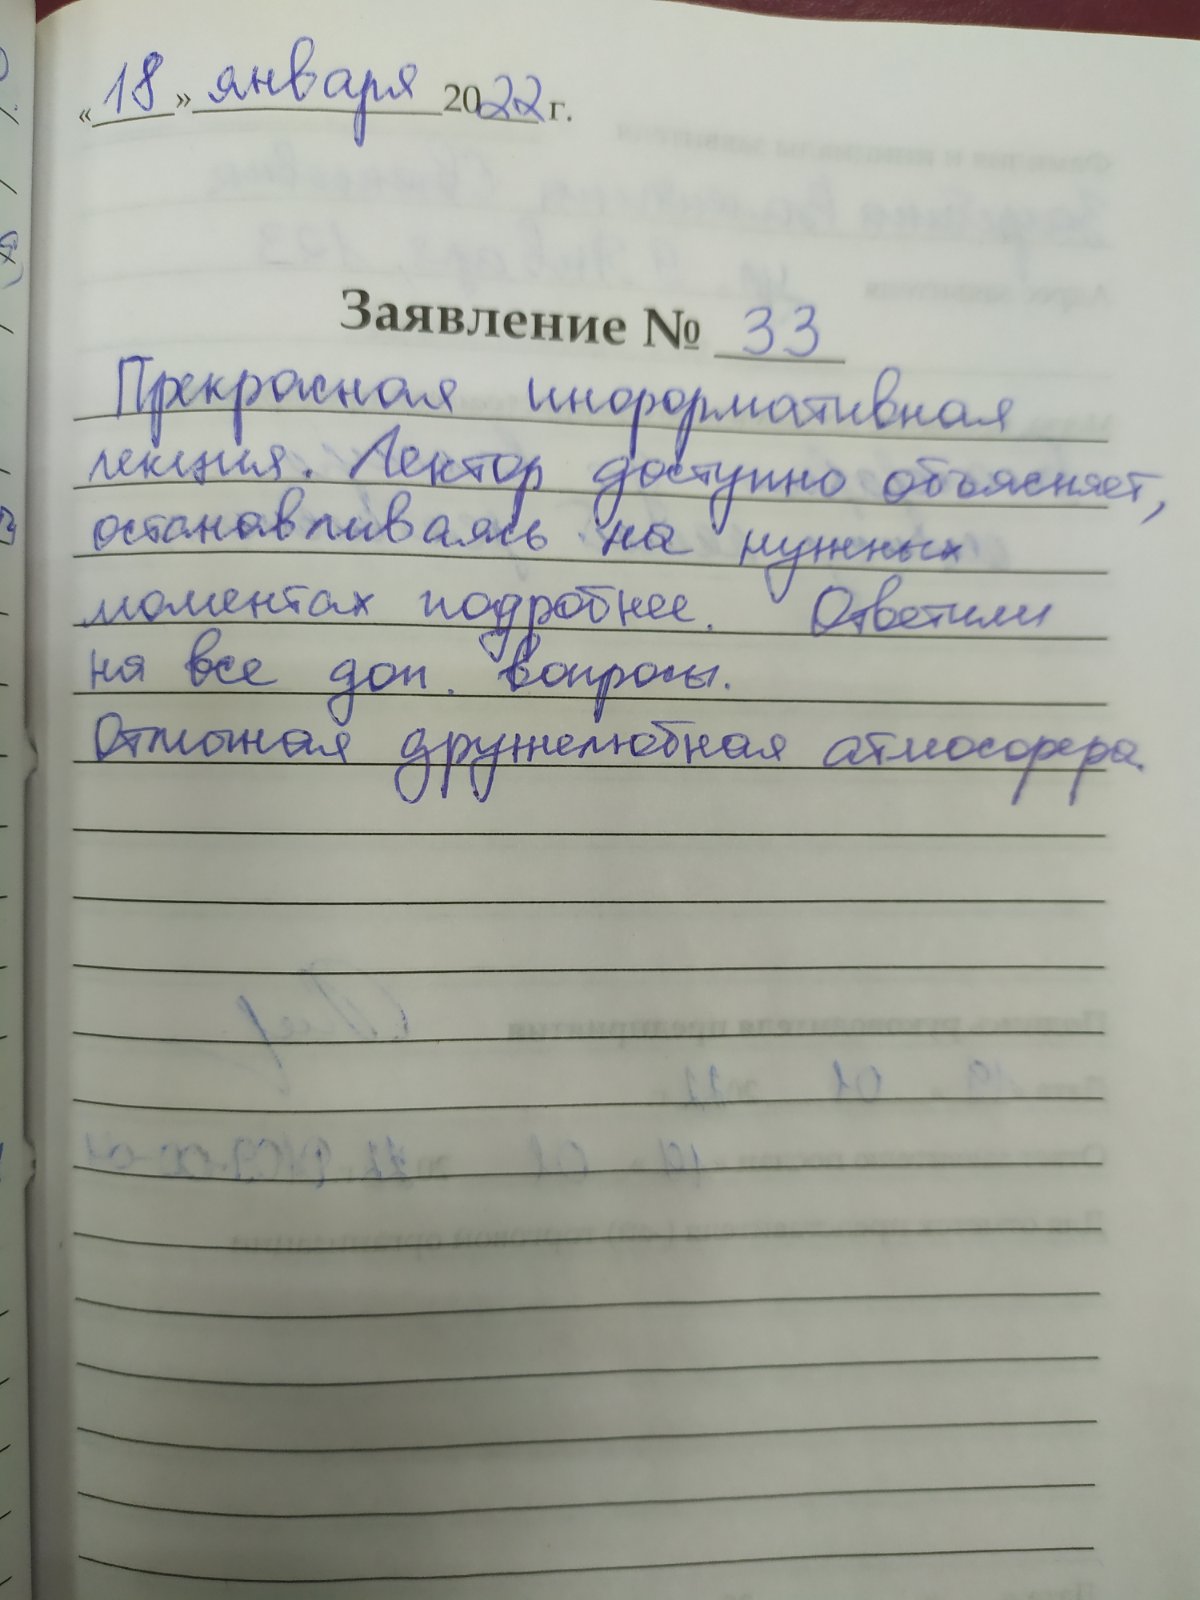 «18» января 2022 г.
Заявление № 33
Прекрасная информативная
лекция. Лектор доступно объясняет,
останавливаясь на нужных
моментах подробнее. Ответили
на все доп. вопросы.
Отличная дружелюбная атмосфера.